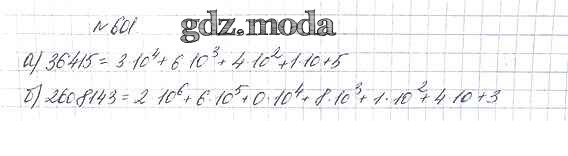 № 601
gdz.moda
а) 36415 = 3·10⁴ + 6·10³ + 4·10² + 1·10 + 5
б) 2608143 = 2·10⁶ + 6·10⁵ + 0·10⁴ + 8·10³ + 1·10² + 4·10 + 3